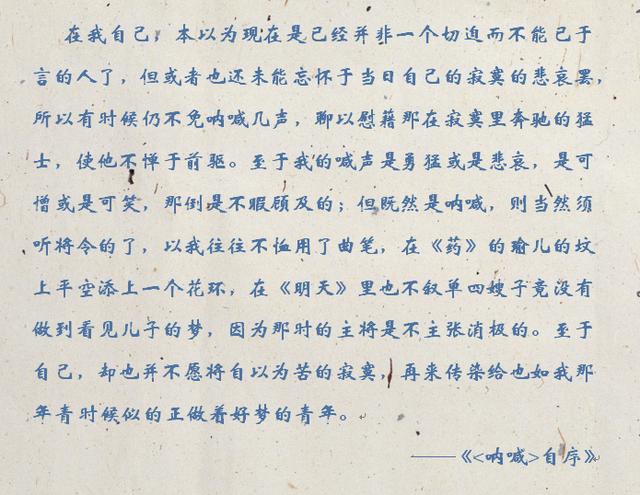 在我自己，本以为现在是已经并非一个切迫而不能已于
言的人了，但或者也还未能忘怀于当日自己的寂寞的悲哀罢，
所以有时候仍不免呐喊几声，聊以慰藉那在寂寞里奔驰的猛
士，使他不惮于前驱。至于我的喊声是勇猛或是悲哀，是可
憎或是可笑，那倒是不暇顾及的；但既然是呐喊，则当然须
听将令的了，以我往往不恤用了曲笔，在《药》的瑜儿的坟
上平空添上一个花环，在《明天》里也不叙单四嫂子竟没有
做到看见儿子的梦，因为那时的主将是不主张消极的。至于
自己，却也并不愿将自以为苦的寂寞，再来传染给也如我那
年青时候似的正做着好梦的青年。
——《<呐喊>自序》